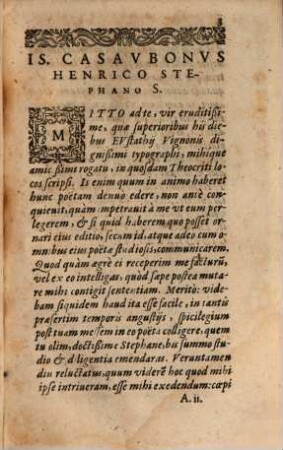 3
IS. CASAVBONVS
HENRICO STE-
PHANO S.
MITTO ad te, vir eruditissi-
me, quæ superioribus his die-
bus EVstathij Vignonis di-
gnissimi typographi, mihique
amicissimi rogatu, in quosdam Theocriti lo-
cos scripsi. Is enim quum in animo haberet
hunc poëtam denuo edere, non antè con-
quieuit, quàm impetrauit à me vt eum per-
legerem, & si quid haberem quo posset or-
nari eius editio, secum id, atque adeo cum o-
mnibus eius poëtæ studiosis, communicarem.
Quod quàm ægrè ei receperim me facturū,
vel ex eo intelligas, quòd sæpe postea muta-
re mihi contigit sententiam. Meritò: vide-
bam siquidem haud ita esse facile, in tantis
præsertim temporis angustijs, spicilegium
post tuam messem in eo poëta colligere, quem
tu olim, doctissime Stephane, tuo summo stu-
dio & diligentia emendaras. Veruntamen
diu reluctatus, quum viderē hoc quod mihi
ipse intriueram, esse mihi exedendum: cœpi
A. ii.